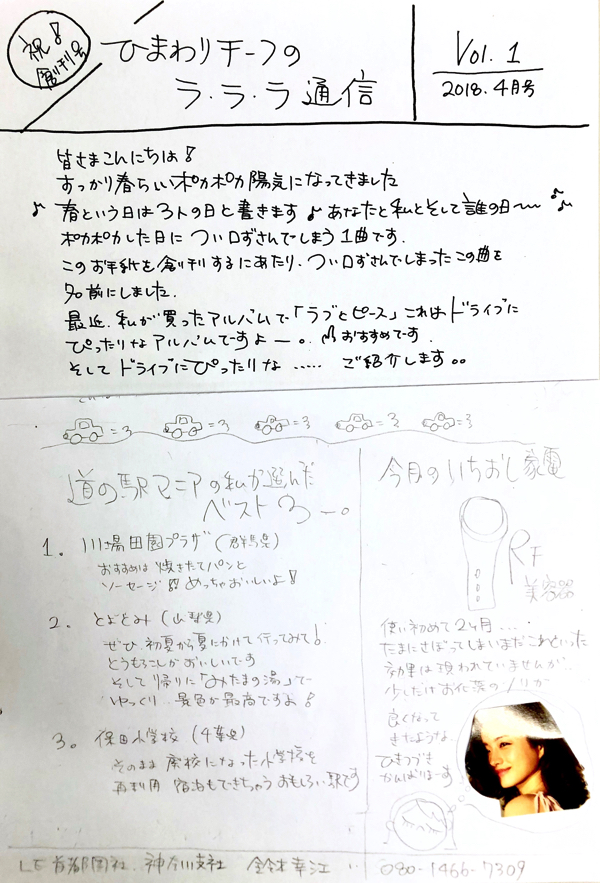 祝!
創刊号
ひまわりチーフの
ラ・ラ・ラ通信
Vol. 1
2018. 4月号
皆さまこんにちは!
すっかり春らしいポカポカ陽気になってきました
♪ 春という日は3人の日と書きます♪あなたと私とそして誰の日〜 ♪♪
ポカポカした日に つい口ずさんでしまう1曲です.
このお手紙を創刊するにあたり、つい口ずさんでしまったこの曲を
名前にしました.
最近、私が買ったアルバムで「ラブとピース」これはドライブに
ぴったりなアルバムですよー。 おすすめです.
そして ドライブにぴったりな ..... ご紹介します。。
道の駅マニアの私が選んだ
ベスト3ー。
1. 川場田園プラザ(群馬県)
おすすめは 焼きたてパンと
ソーセージ!! めっちゃおいしいよ!
2. とよとみ(山梨県)
ぜひ、初夏から夏にかけて行ってみて!
とうもろこしがおいしいです
そして帰りに「みたまの湯」で
ゆっくり.. 景色が最高ですよ!
3. 保田小学校(千葉県)
そのまま 廃校になった小学校を
再利用 宿泊もできちゃう おもしろい駅です
今月のいちおし家電
RF
美容
使い初めて2ヶ月....
たまにさぼってしまいまだこれといった
効果は現われていませんが…
少しだけお化粧のノリが
良くなって
きたような.
ひきつづき
がんばりまーす
LE首都圏社. 神奈川支社 鈴木幸江
080-1466-7309